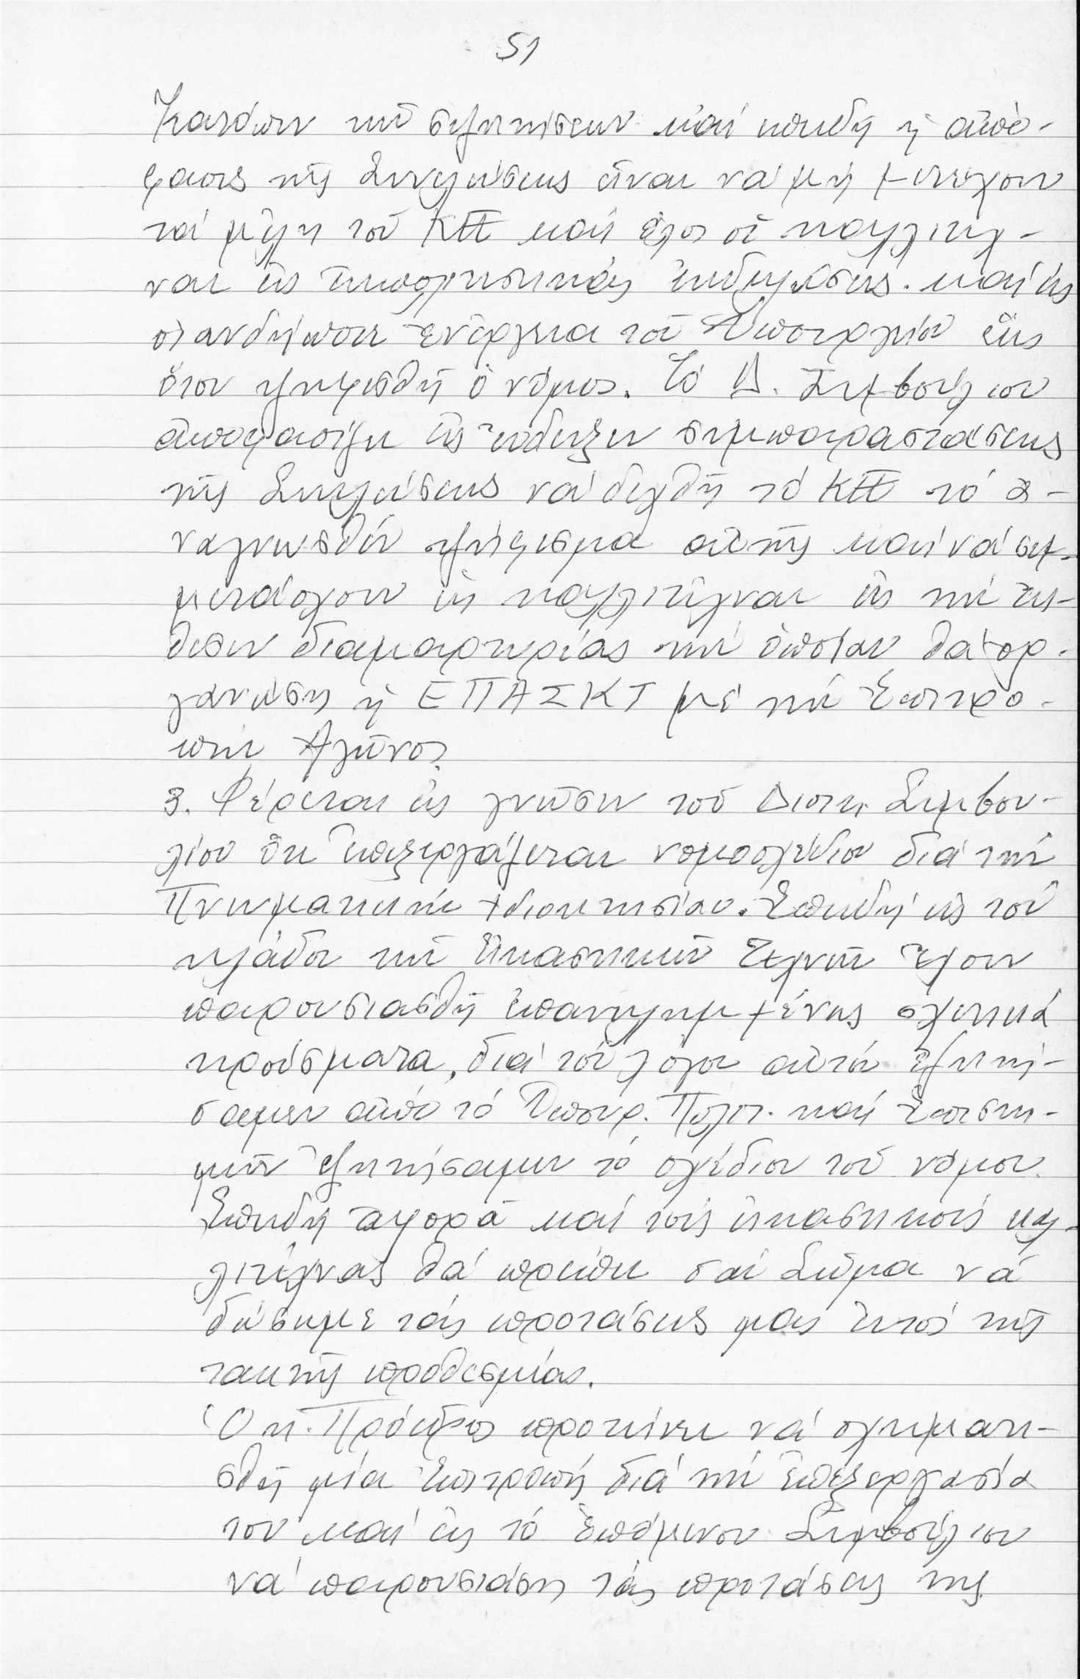 51
Κατόπιν τῶν συζητήσεων καί ἐπειδή ἡ ἀπό-
φασις τῆς Συνελεύσεως εἶναι νά μή μετέχουν
τά μέλη τοῦ ΚΠ καί ὅλοι οἱ καλλιτέχ-
ναι εἰς καί εἰς
οἱανδήποτε ἐνέργεια τοῦ Ὑπουργείου ἕως
ὅτου ψηφισθῆ ὁ νόμος. Τό Δ. Συμβούλιον
ἀποφασίζει εἰς ἔνδειξιν συμπαραστάσεως
τῆς Συνελεύσεως νά δεχθῆ τό ΚΠ τό ἀ-
ναγνωσθέν ψήφισμα αὐτῆς καί νά συμ-
μετάσχουν εἰς καλλιτέχναι εἰς τήν ἔκ-
θεσιν διαμαρτυρίας τήν ὁποίαν θά ὀρ-
γανώση ἡ ΕΠΑΣΚΤ μέ τήν Ἐπιτρο-
πήν Ἀγῶνος.
3. Φέρεται εἰς γνῶσιν τοῦ Διοικ. Συμβου-
λίου ὅτι ἐπεξεργάζεται νομοσχέδιον διά τήν
Πνευματικήν Ἰδιοκτησίαν. Ἐπειδή εἰς τόν
κλάδον τῶν Εἰκαστικῶν Τεχνῶν ἔχουν
παρουσιασθῆ ἐπανειλημμένως σχετικά
κρούσματα, διά τόν λόγον αὐτόν ἐζητή-
σαμεν ἀπό τό Ὑπουρ. Πολιτ. καί Ἐπιστη-
μῶν ἐζητήσαμεν τό σχέδιον τοῦ νόμου.
Ἐπειδή ἀφορᾶ καί τούς εἰκαστικούς καλ-
λιτέχνας θά πρέπει σάν Σῶμα νά
δώσωμε τάς προτάσεις μας ἐντός τῆς
τακτῆς προθεσμίας.
Ὁ κ. Πρόεδρος προτείνει νά σχηματι-
σθῆ μία ἐπιτροπή διά τήν ἐπεξεργασία
του καί εἰς τό ἑπόμενον Συμβούλιον
νά παρουσιάση τάς προτάσεις της